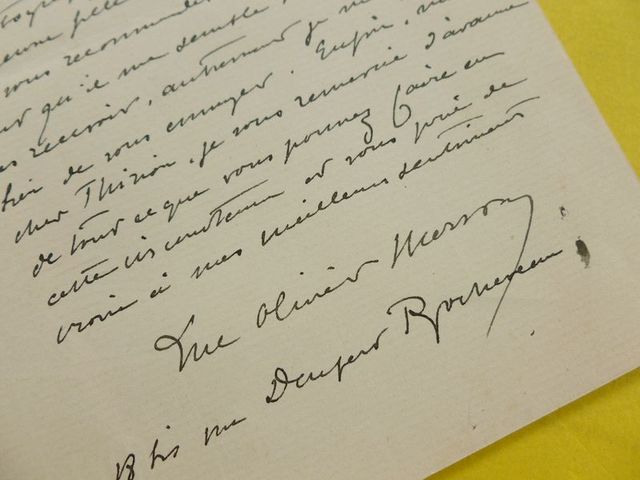 vous recommande
qu'il me semble
recevoir, autrement je ne
bien de vous ennuyer. Enfin,
cher Thirion, je vous remercie d'avance
de tout ce que vous pourrez faire en
cette circonstance et vous prie de
croire à mes meilleurs sentiments
Luc Olivier Merson
Bis rue Denfert Rochereau